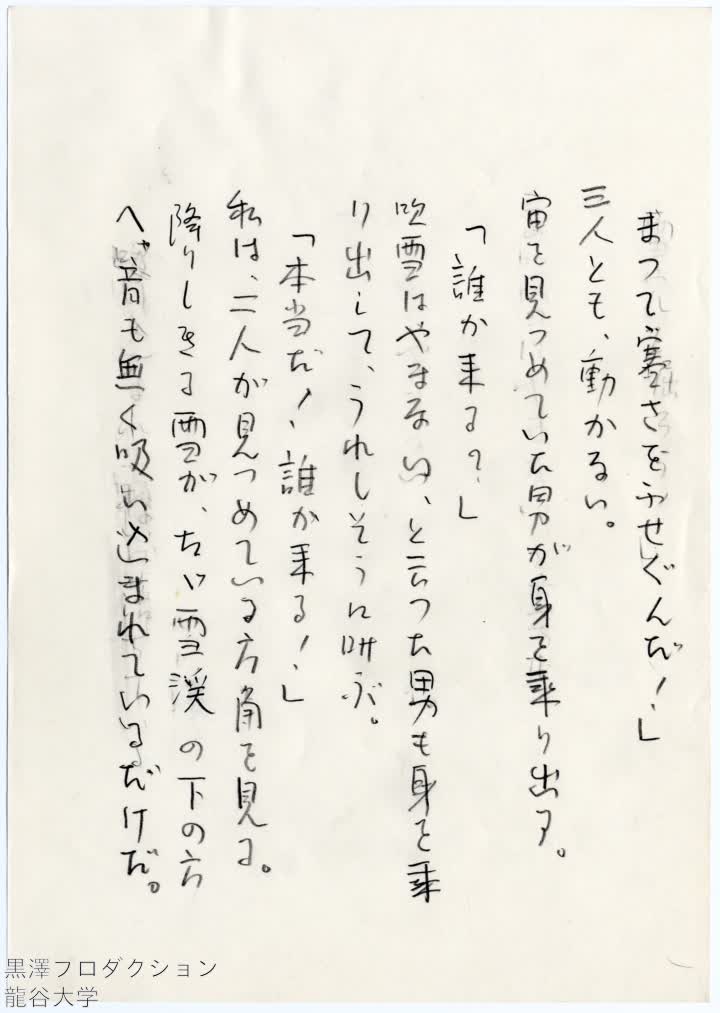 まつて寒さをふせぐんだ！」
三人とも、動かない。
宙を見つめていた男が身を乗り出す。
「誰か来る？」
吹雪はやまない、と云つた男も身を乗
り出して、うれしそうに叫ぶ。
「本当だ！、誰か来る！」
私は、二人が見つめている方角を見る。
降りしきる雪が、たゞ雪渓の下の方
へ、音も無く吸い込まれているだけだ。
黒澤プロダクション
龍谷大学